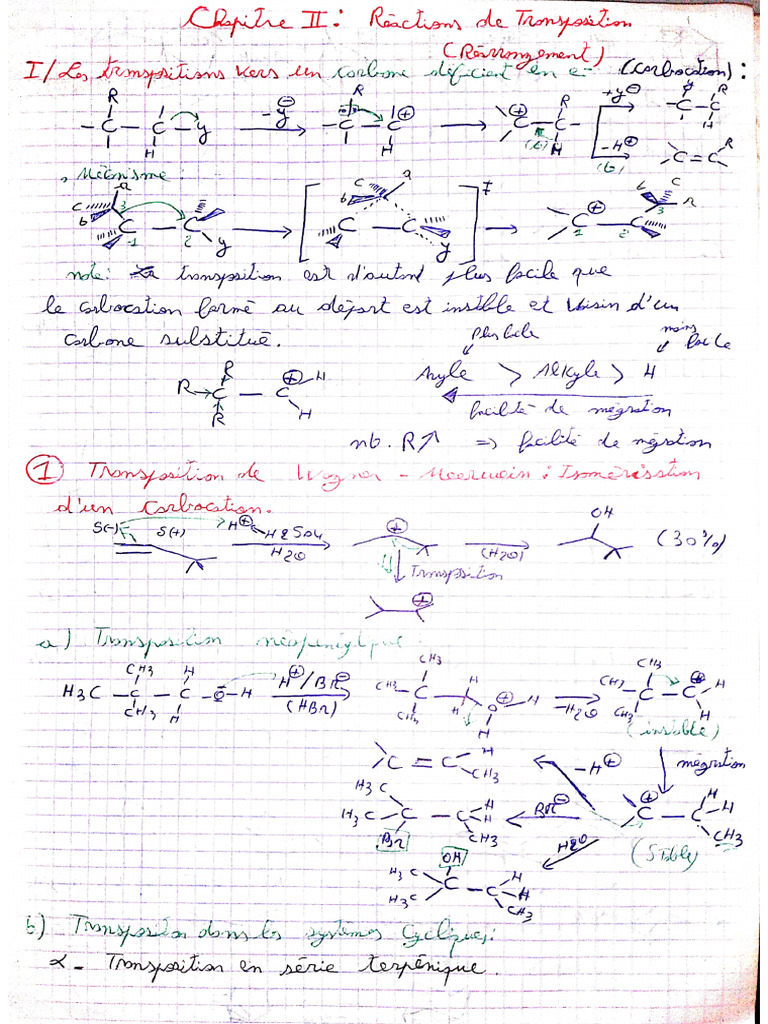 Chapitre II : Réactions de Transposition
(Réarrangement)
I/ Les transpositions vers un carbone déficient en e- (carbocation) :
R
- C - C - y
H
-y⊖
R
- C - C ⊕
H
⊕ C - C -
R
H
+y⊖
-H⊕
y
- C - C -
R
H
C = C
R
Mécanisme :
a
c
b
3
C
1
C
2
y
c
a
b
C
C
y
‡
⊕
C
1
C
2
3
c
note : La transposition est d'autant plus facile que
le carbocation formé au départ est instable et voisin d'un
carbone substitué.
R → C - C ⊕ H
R
R
H
Plus facile
moins facile
Aryle > Alkyle > H
facilité de migration
nb. R↗ => facilité de migration
① Transposition de Wagner - Meerwein : Isomérisation
d'un carbocation.
S(-)
S(+)
H⊕
H2SO4
H2O
⊕
(H2O)
OH
(30%)
Transposition
⊕
a) Transposition néopentylique :
CH3
H
H3C - C - C - O - H
CH3
H
H⊕/Br⊖
(HBr)
CH3
CH3
CH3
C
H
H
O
⊕
H
H
-H2O
CH3
CH3
CH3
C - C
⊕
H
H
(instable)
migration
⊕
C - C
H
H
CH3
(Stable)
-H⊕
C = C
H
CH3
Br⊖
H3C
H3C
C - C
H
H
CH3
Br
H2O
OH
H3C
H3C
C - C
H
H
CH3
b) Transposition dans les systèmes cycliques :
α - Transposition en série terpénique.